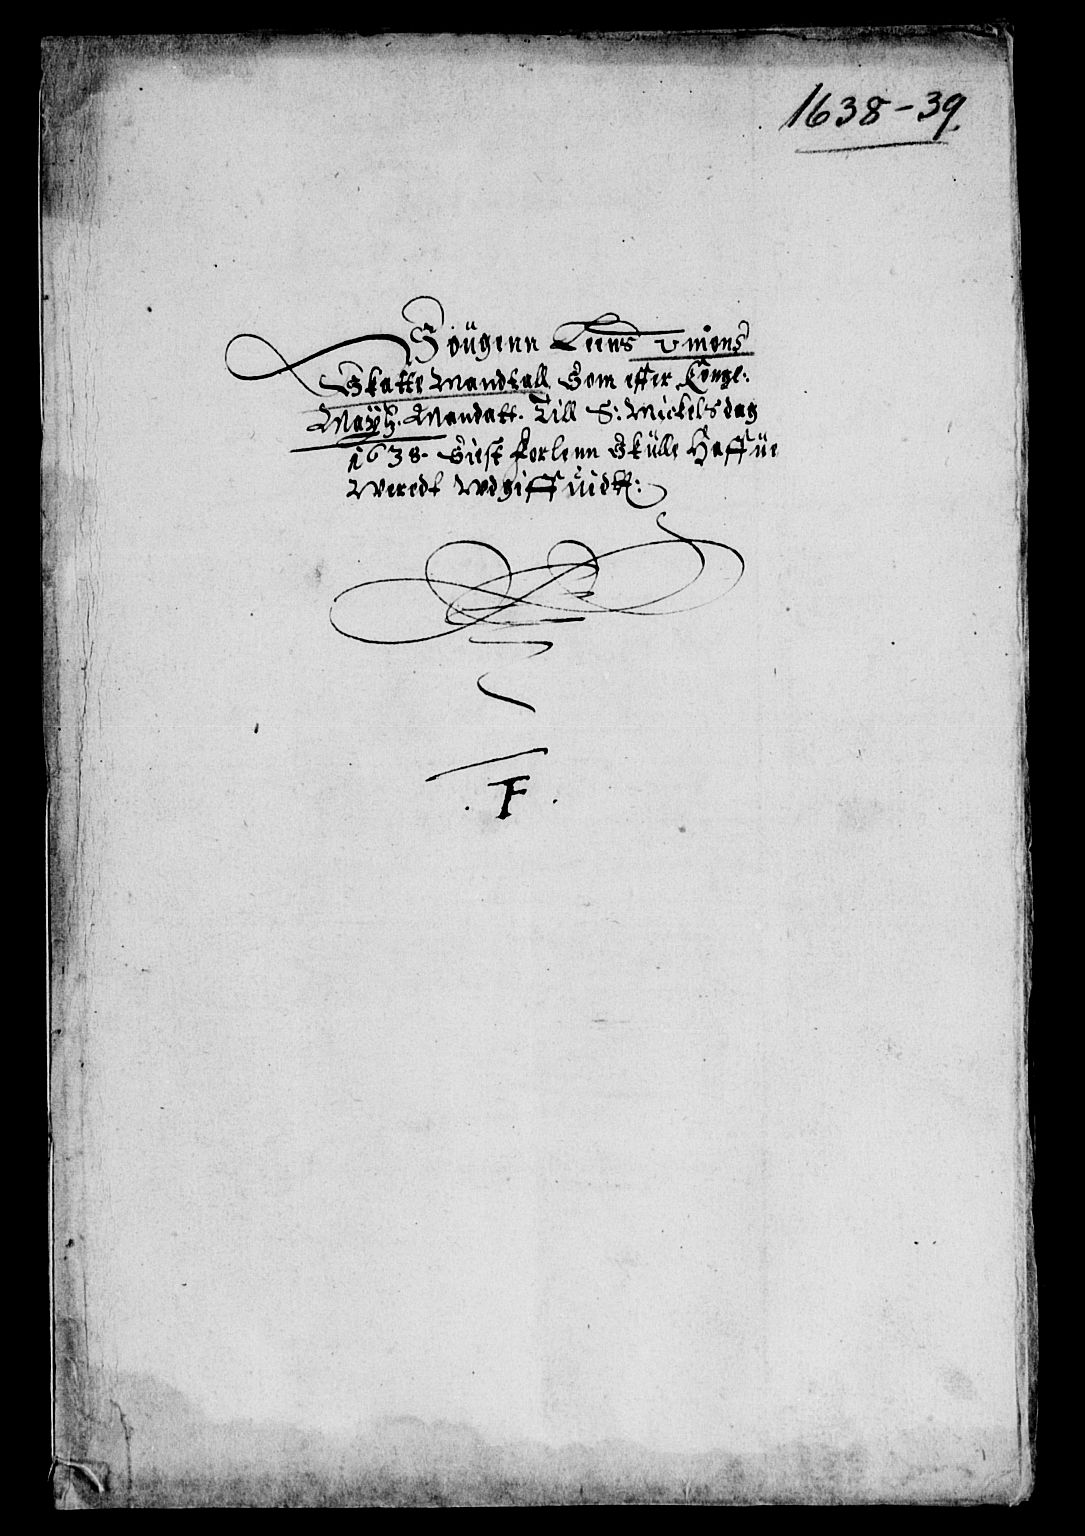 1638-39.
Söugenn Leens Unions
Skatte Mandtall Som effter Kongl:
Maytz. Mandatt. Till S: Mickelsdag
1638. Siest forlenn Skulle Haffue
Weredt Wdgiffuidt:
F